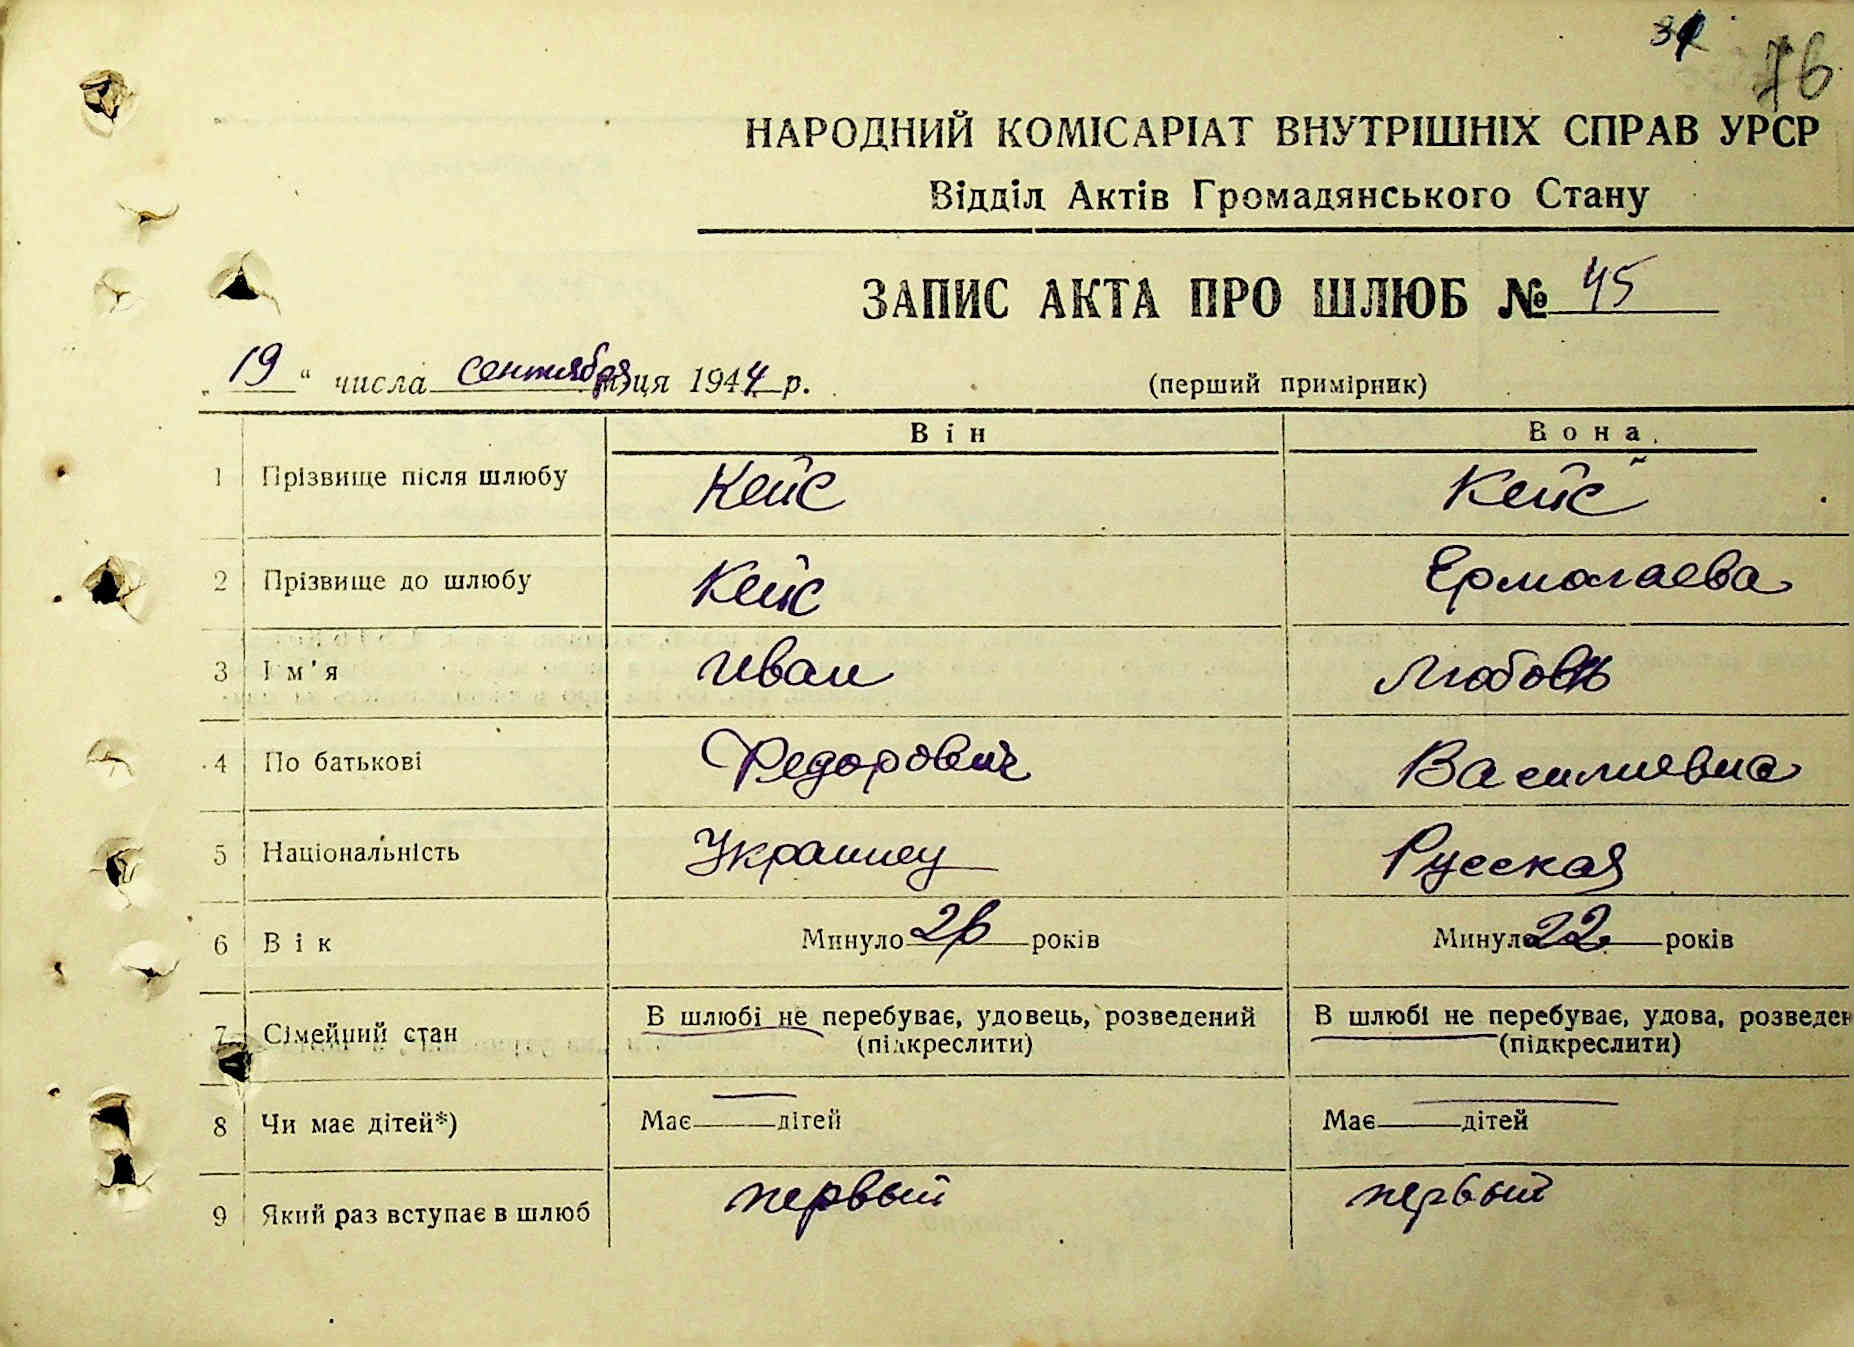 76
НАРОДНИЙ КОМІСАРІАТ ВНУТРІШНІХ СПРАВ УРСР
Відділ Актів Громадянського Стану
ЗАПИС АКТА ПРО ШЛЮБ № 45
„19“ числа сентября м-ця 1944 р. (перший примірник)
Він Вона
1 Прізвище після шлюбу Кейс Кейс
2 Прізвище до шлюбу Кейс Ермолаева
3 Ім'я Иван Любовь
4 По батькові Федорович Василиевна
5 Національність Украинец Русская
6 Вік Минуло 26 років Минуло 22 років
7 Сімейний стан В шлюбі не перебуває, удовець, розведений В шлюбі не перебуває, удова, розведен
(підкреслити) (підкреслити)
8 Чи має дітей*) Має — дітей Має — дітей
9 Який раз вступає в шлюб первый первый